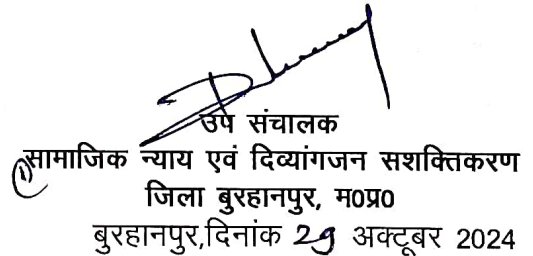 उप संचालक
सामाजिक न्याय एवं दिव्यांगजन सशक्तिकरण
जिला बुरहानपुर, म0प्र0
बुरहानपुर,दिनांक 29 अक्टूबर 2024